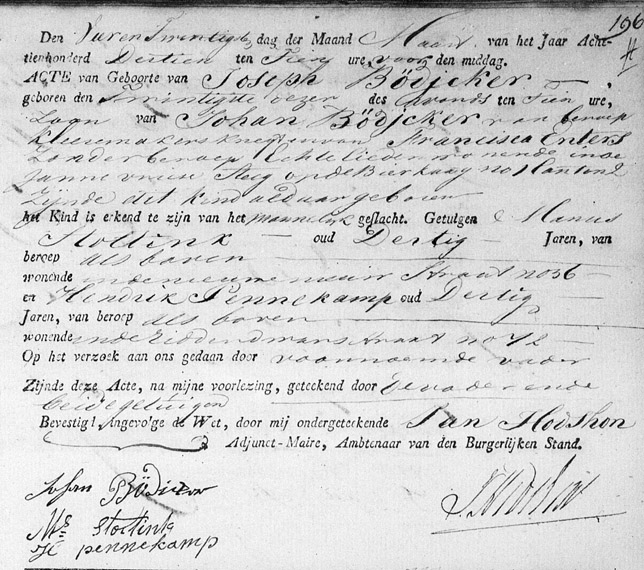 196
Den Vier en Twintigste dag der Maand Maart van het Jaar Acht-
tienhonderd Dertien ten Tien ure voor den middag.
ACTE van Geboorte van Joseph Bödicker
geboren den Twintigste dezer des Avonds ten Tien ure,
Zoon van Johan Bödicker van beroep
kleermakersknecht en van Francisca Enters
Zonder beroep Echtelieden wonende in de
Janne vriese Steeg op de Bierkaay no Kanton
Zijnde dit kind aldaar geboren
het Kind is erkend te zijn van het mannelijk geslacht. Getuigen Manus
Stottink oud Dertig Jaren, van
beroep als boven
wonende in de nieuwe Straat no 56
en Hendrik Pennekamp oud Dertig
Jaren, van beroep als boven
wonende in de Ridderstraat no 72
Op het verzoek aan ons gedaan door voornoemde vader
Zijnde deze Acte, na mijne voorlezing, geteekend door de vader ende
beide getuigen
Bevestigt Angevolge de Wet, door mij ondergeteekende Jan Hodshon
Adjunct-Maire, Ambtenaar van den Burgerlijken Stand.
Johan Bödicker
Ms Stottink
H pennekamp